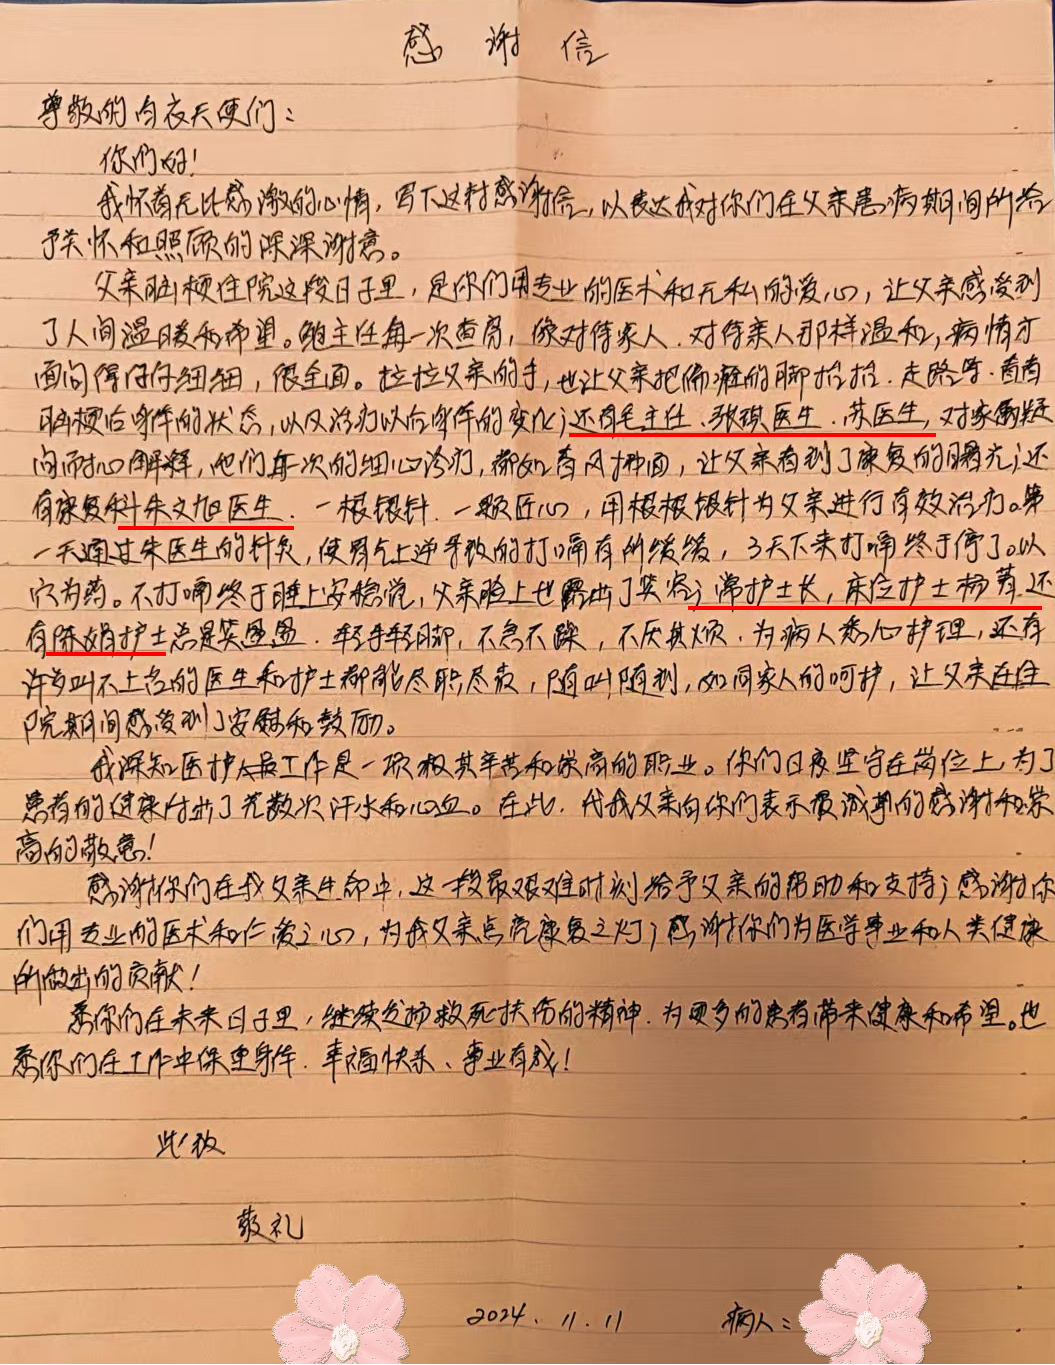 感谢信
尊敬的白衣天使们：
你们好！
我怀着无比感激的心情，写下这封感谢信，以表达我对你们在父亲患病期间所给
予关怀和照顾的深深谢意。
父亲脑梗住院这段日子里，是你们用专业的医术和无私的爱心，让父亲感受到
了人间温暖和希望。鲍主任每一次查房，像对待家人、对待亲人那样温和，病情方
面问得仔仔细细，很全面。拉拉父亲的手，也让父亲把偏瘫的脚抬抬、走路等、看看
脑梗后身体的状态，以及治疗以后身体的变化；还有毛主任、张琪医生、苏医生，对家属疑
问耐心解释，他们每次的细心诊疗，都如春风拂面，让父亲看到了康复的曙光；还
有康复科朱文旭医生、一根银针、一颗匠心，用根根银针为父亲进行有效治疗。第
一天通过朱医生的针灸，使胃气上逆导致的打嗝有所缓缓，3天下来打嗝终于停了。以
穴为药。不打嗝终于睡上安稳觉，父亲脸上也露出了笑容；常护士长，床位护士杨芳、还
有陈娟护士总是笑盈盈、轻手轻脚，不急不躁，不厌其烦、为病人悉心护理，还有
许多叫不上名的医生和护士都能尽职尽责，随叫随到，如同家人的呵护，让父亲在住
院期间感受到了安慰和鼓励。
我深知医护人员工作是一项极其辛苦和崇高的职业。你们日夜坚守在岗位上，为了
患者的健康付出了无数次汗水和心血。在此、代我父亲向你们表示最诚挚的感谢和崇
高的敬意！
感谢你们在我父亲生命中，这一段最艰难时刻给予父亲的帮助和支持；感谢你
们用专业的医术和仁爱之心，为我父亲点亮康复之灯；感谢你们为医学事业和人类健康
所做出的贡献！
愿你们在未来日子里，继续发扬救死扶伤的精神、为更多的患者带来健康和希望。也
愿你们在工作中保重身体、幸福快乐、事业有成！
此致
敬礼
2024.11.11 病人：